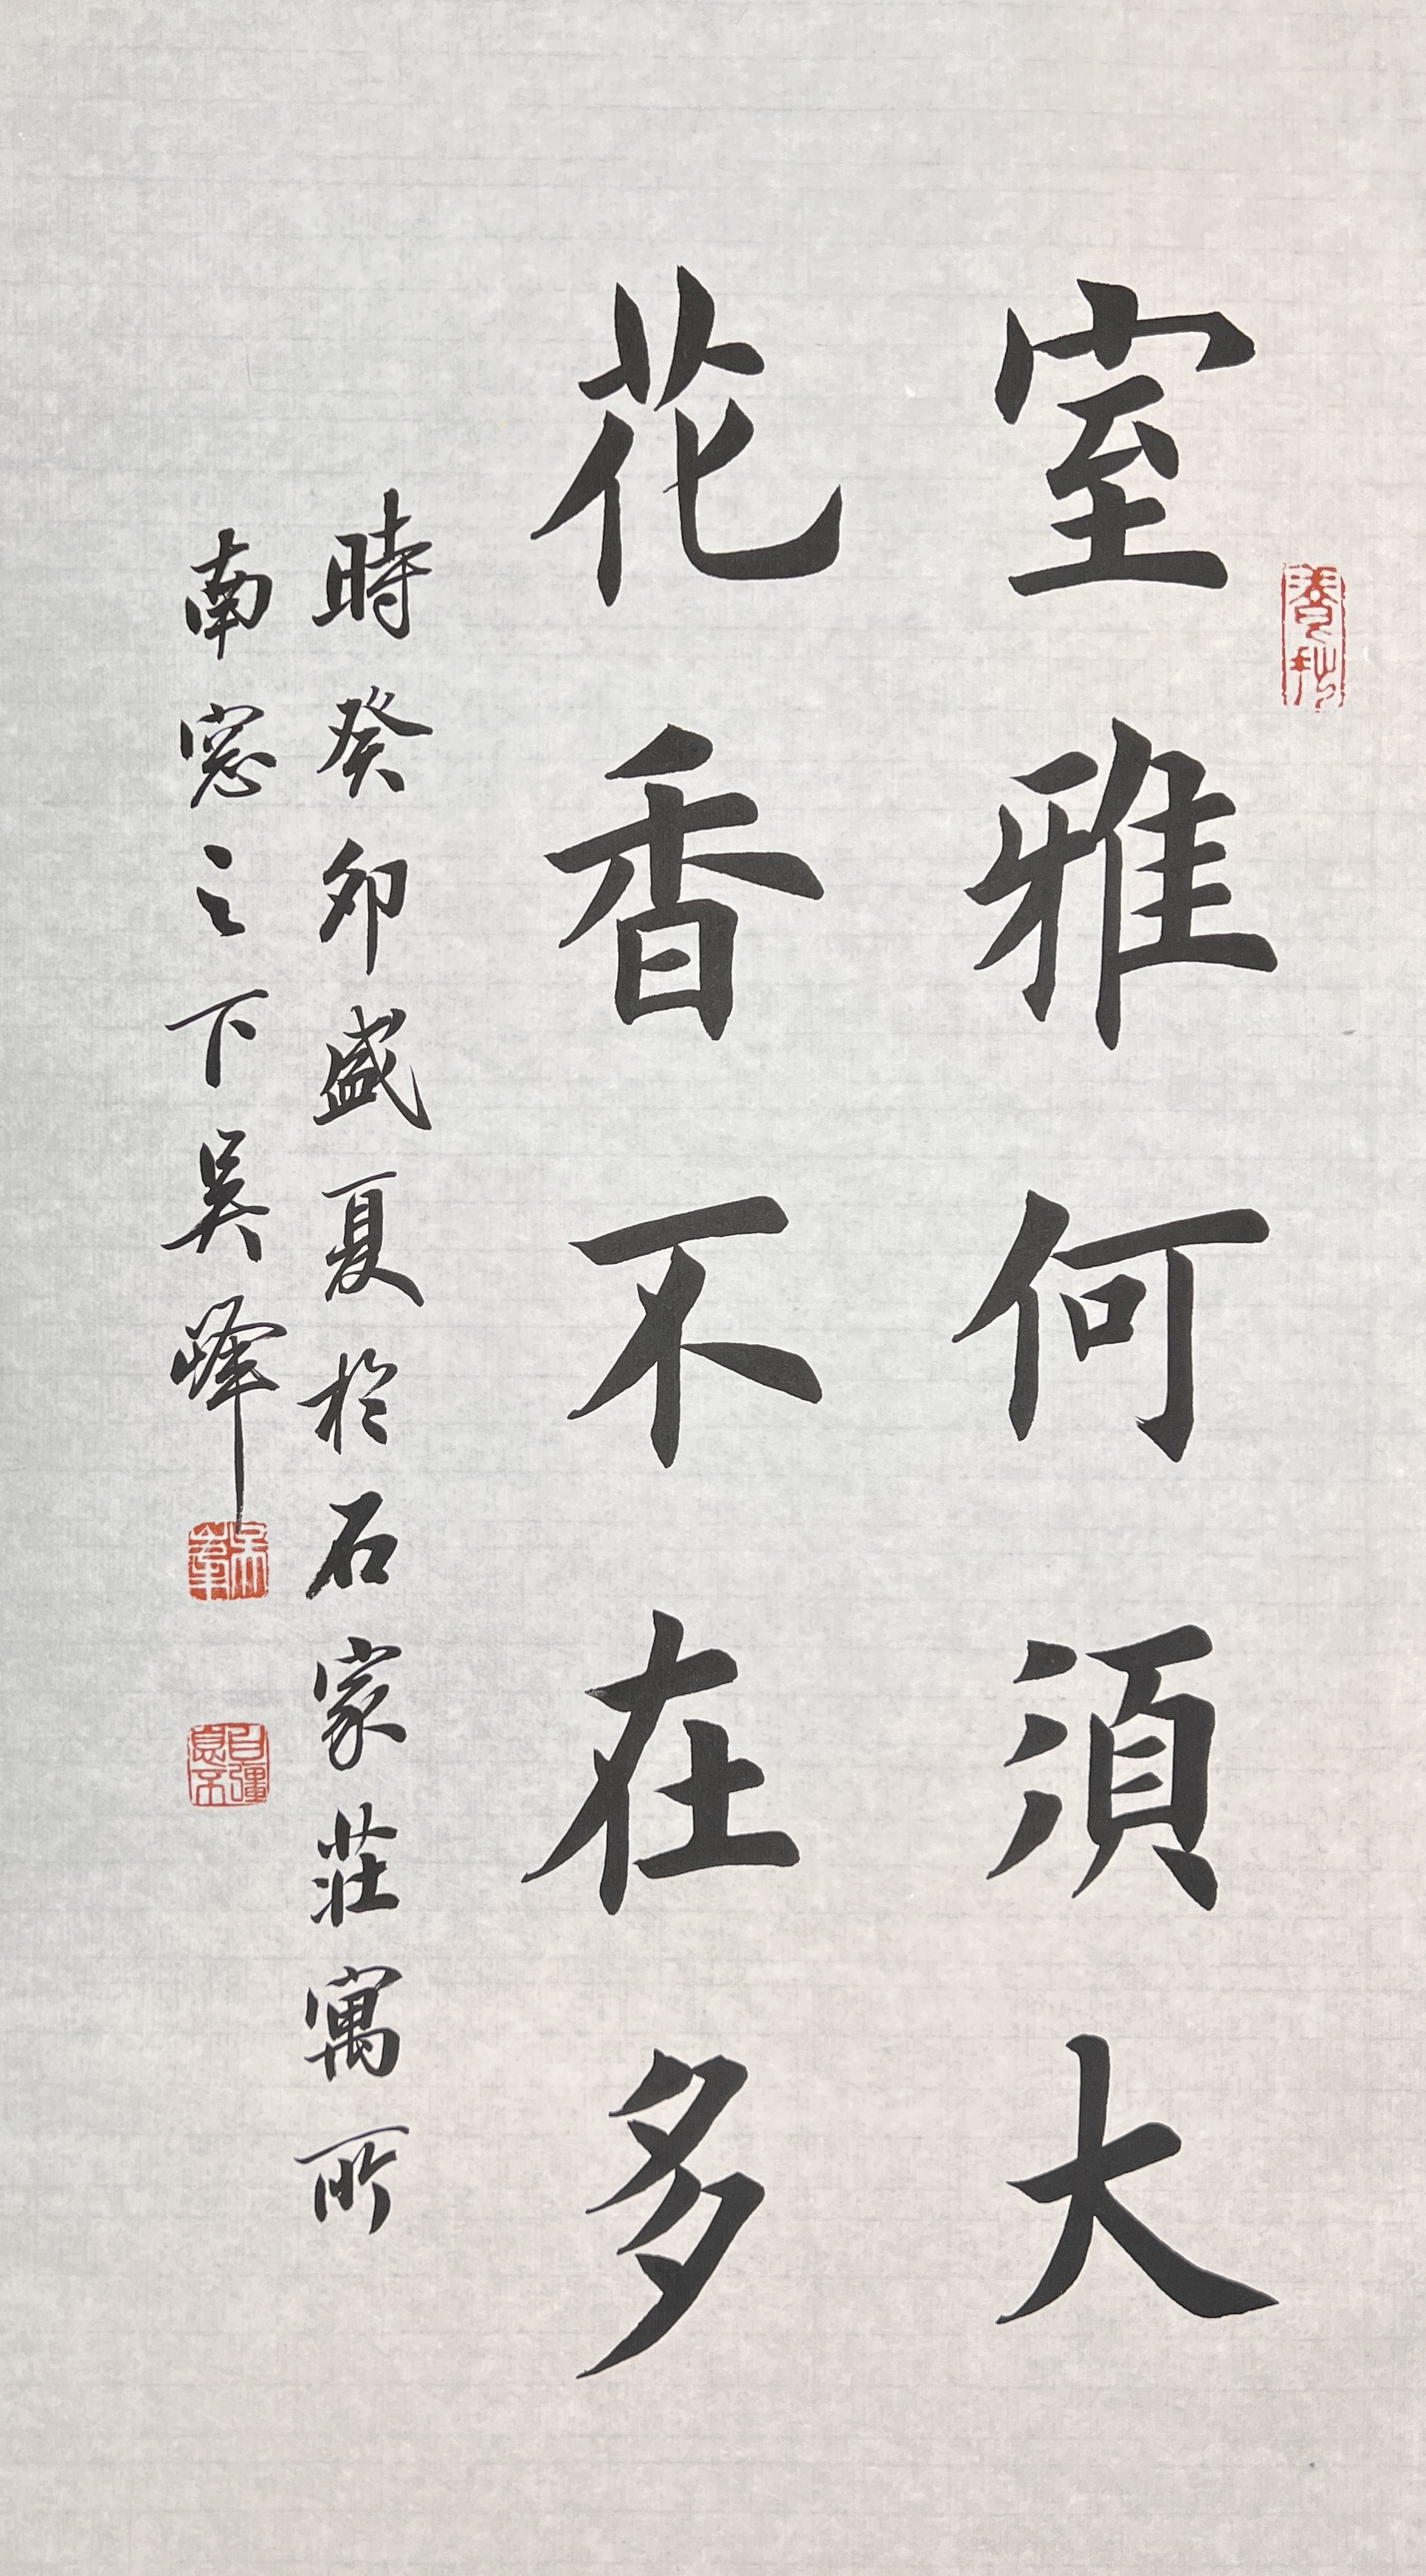 室雅何須大
花香不在多
時癸卯盛夏於石家莊寓所
南窓之下吳峰
自彊不息